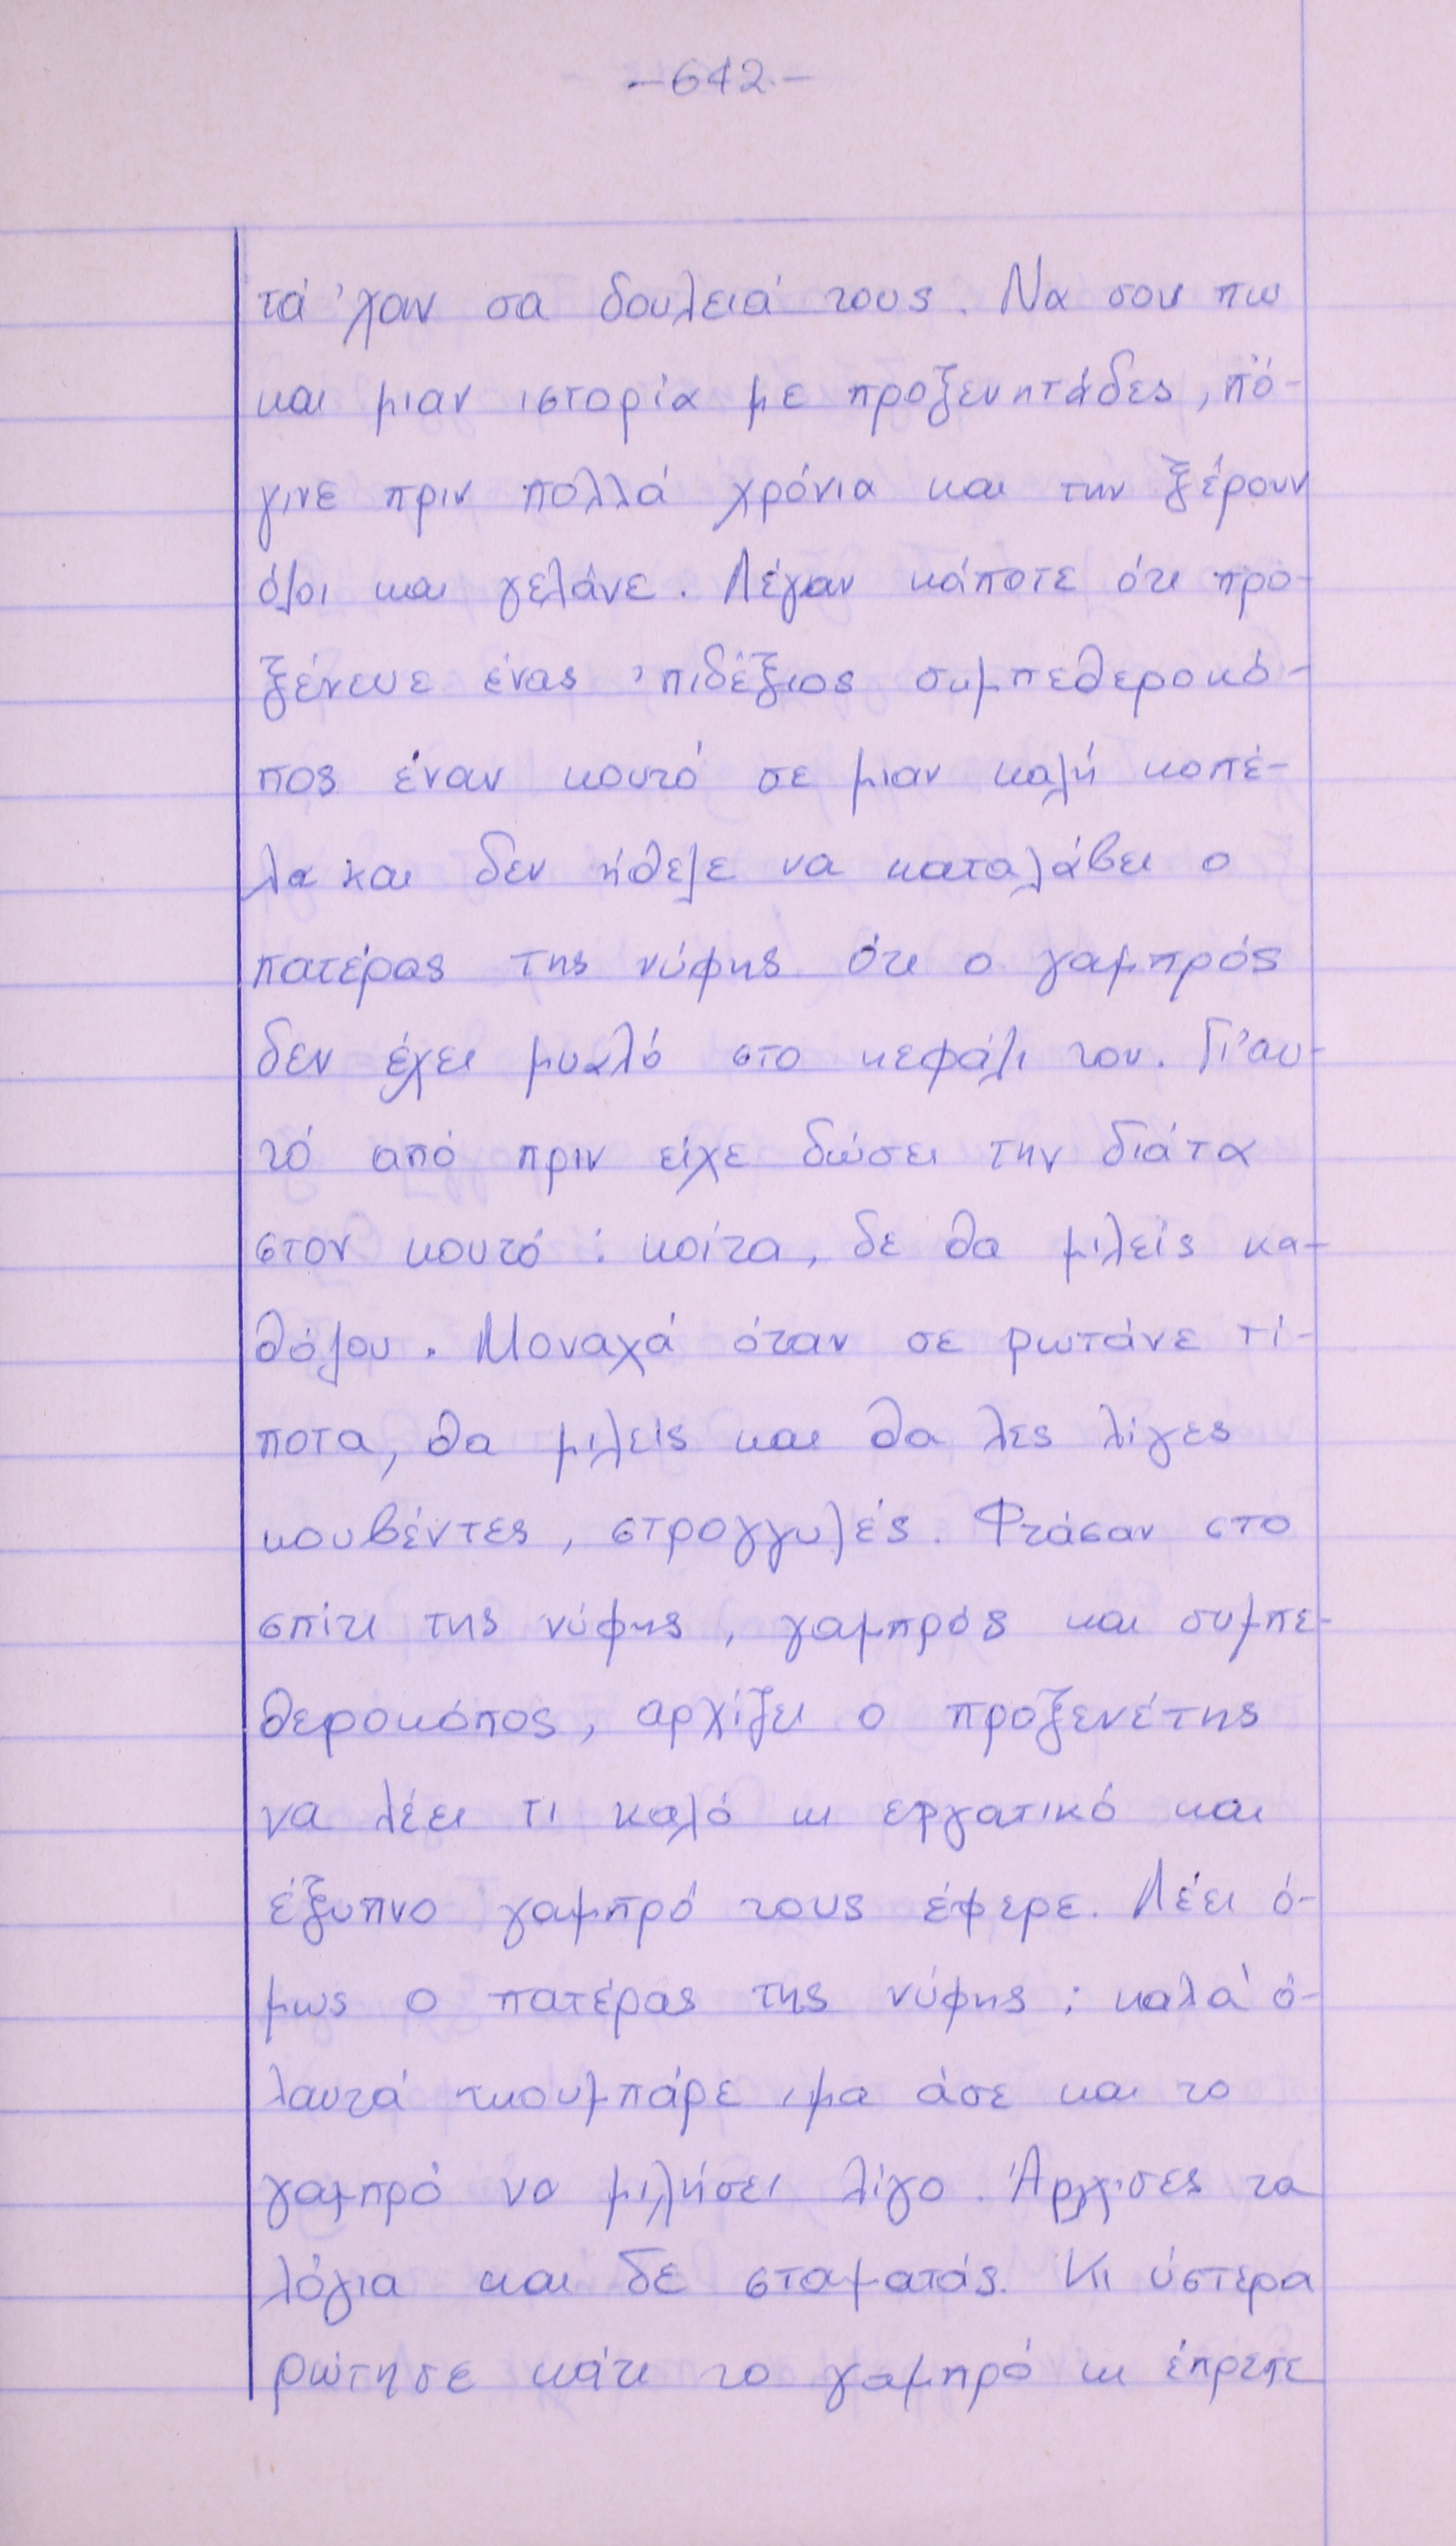 -642-
τά 'χαν σα δουλειά τους. Να σου πω
και μιαν ιστορία με προξενητάδες, πό-
γινε πριν πολλά χρόνια και την ξέρουν
όλοι και γελάνε. Λέγαν κάποτε ότι προ-
ξένευε ένας 'πιδέξιος συμπεθεροκό-
πος έναν κουτό σε μιαν καλή κοπέ-
λα και δεν ήθελε να καταλάβει ο
πατέρας της νύφης ότι ο γαμπρός
δεν έχει μυαλό στο κεφάλι του. Γι'αυ-
τό από πριν είχε δώσει την διάτα
στον κουτό : κοίτα, δε θα μιλείς κα-
θόλου. Μοναχά όταν σε ρωτάνε τί-
ποτα, θα μιλείς και θα λες λίγες
κουβέντες, στρογγυλές. Φτάσαν στο
σπίτι της νύφης, γαμπρός και συμπε-
θεροκόπος, αρχίζει ο προξενέτης
να λέει τι καλό κι εργατικό και
έξυπνο γαμπρό τους έφερε. Λέει ό-
μως ο πατέρας της νύφης : καλά ό-
λαυτά κουμπάρε, μα άσε και το
γαμπρό να μιλήσει λίγο. Άρχισες τα
λόγια και δε σταματάς. Κι ύστερα
ρώτησε κάτι το γαμπρό κι έπρεπε